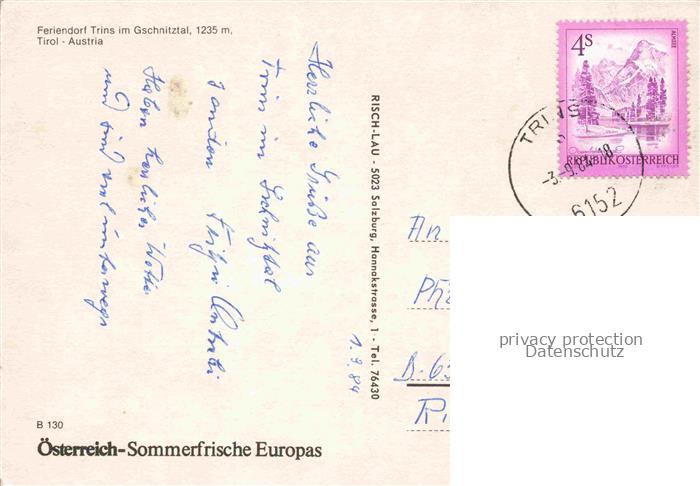 Feriendorf Trins im Gschnitztal, 1235 m,
Tirol - Austria
Herzliche Grüße aus
Trins im Gschnitztal
senden
Haben herrliches Wetter
und sind viel unterwegs
1.9.84
RISCH-LAU - 5023 Salzburg, Hannakstrasse, 1 - Tel. 76430
ALMSEE
4S
REPUBLIK ÖSTERREICH
TRINS
-3.-9.84-18
6152
An
B-63
privacy protection
Datenschutz
B 130
Österreich-Sommerfrische Europas